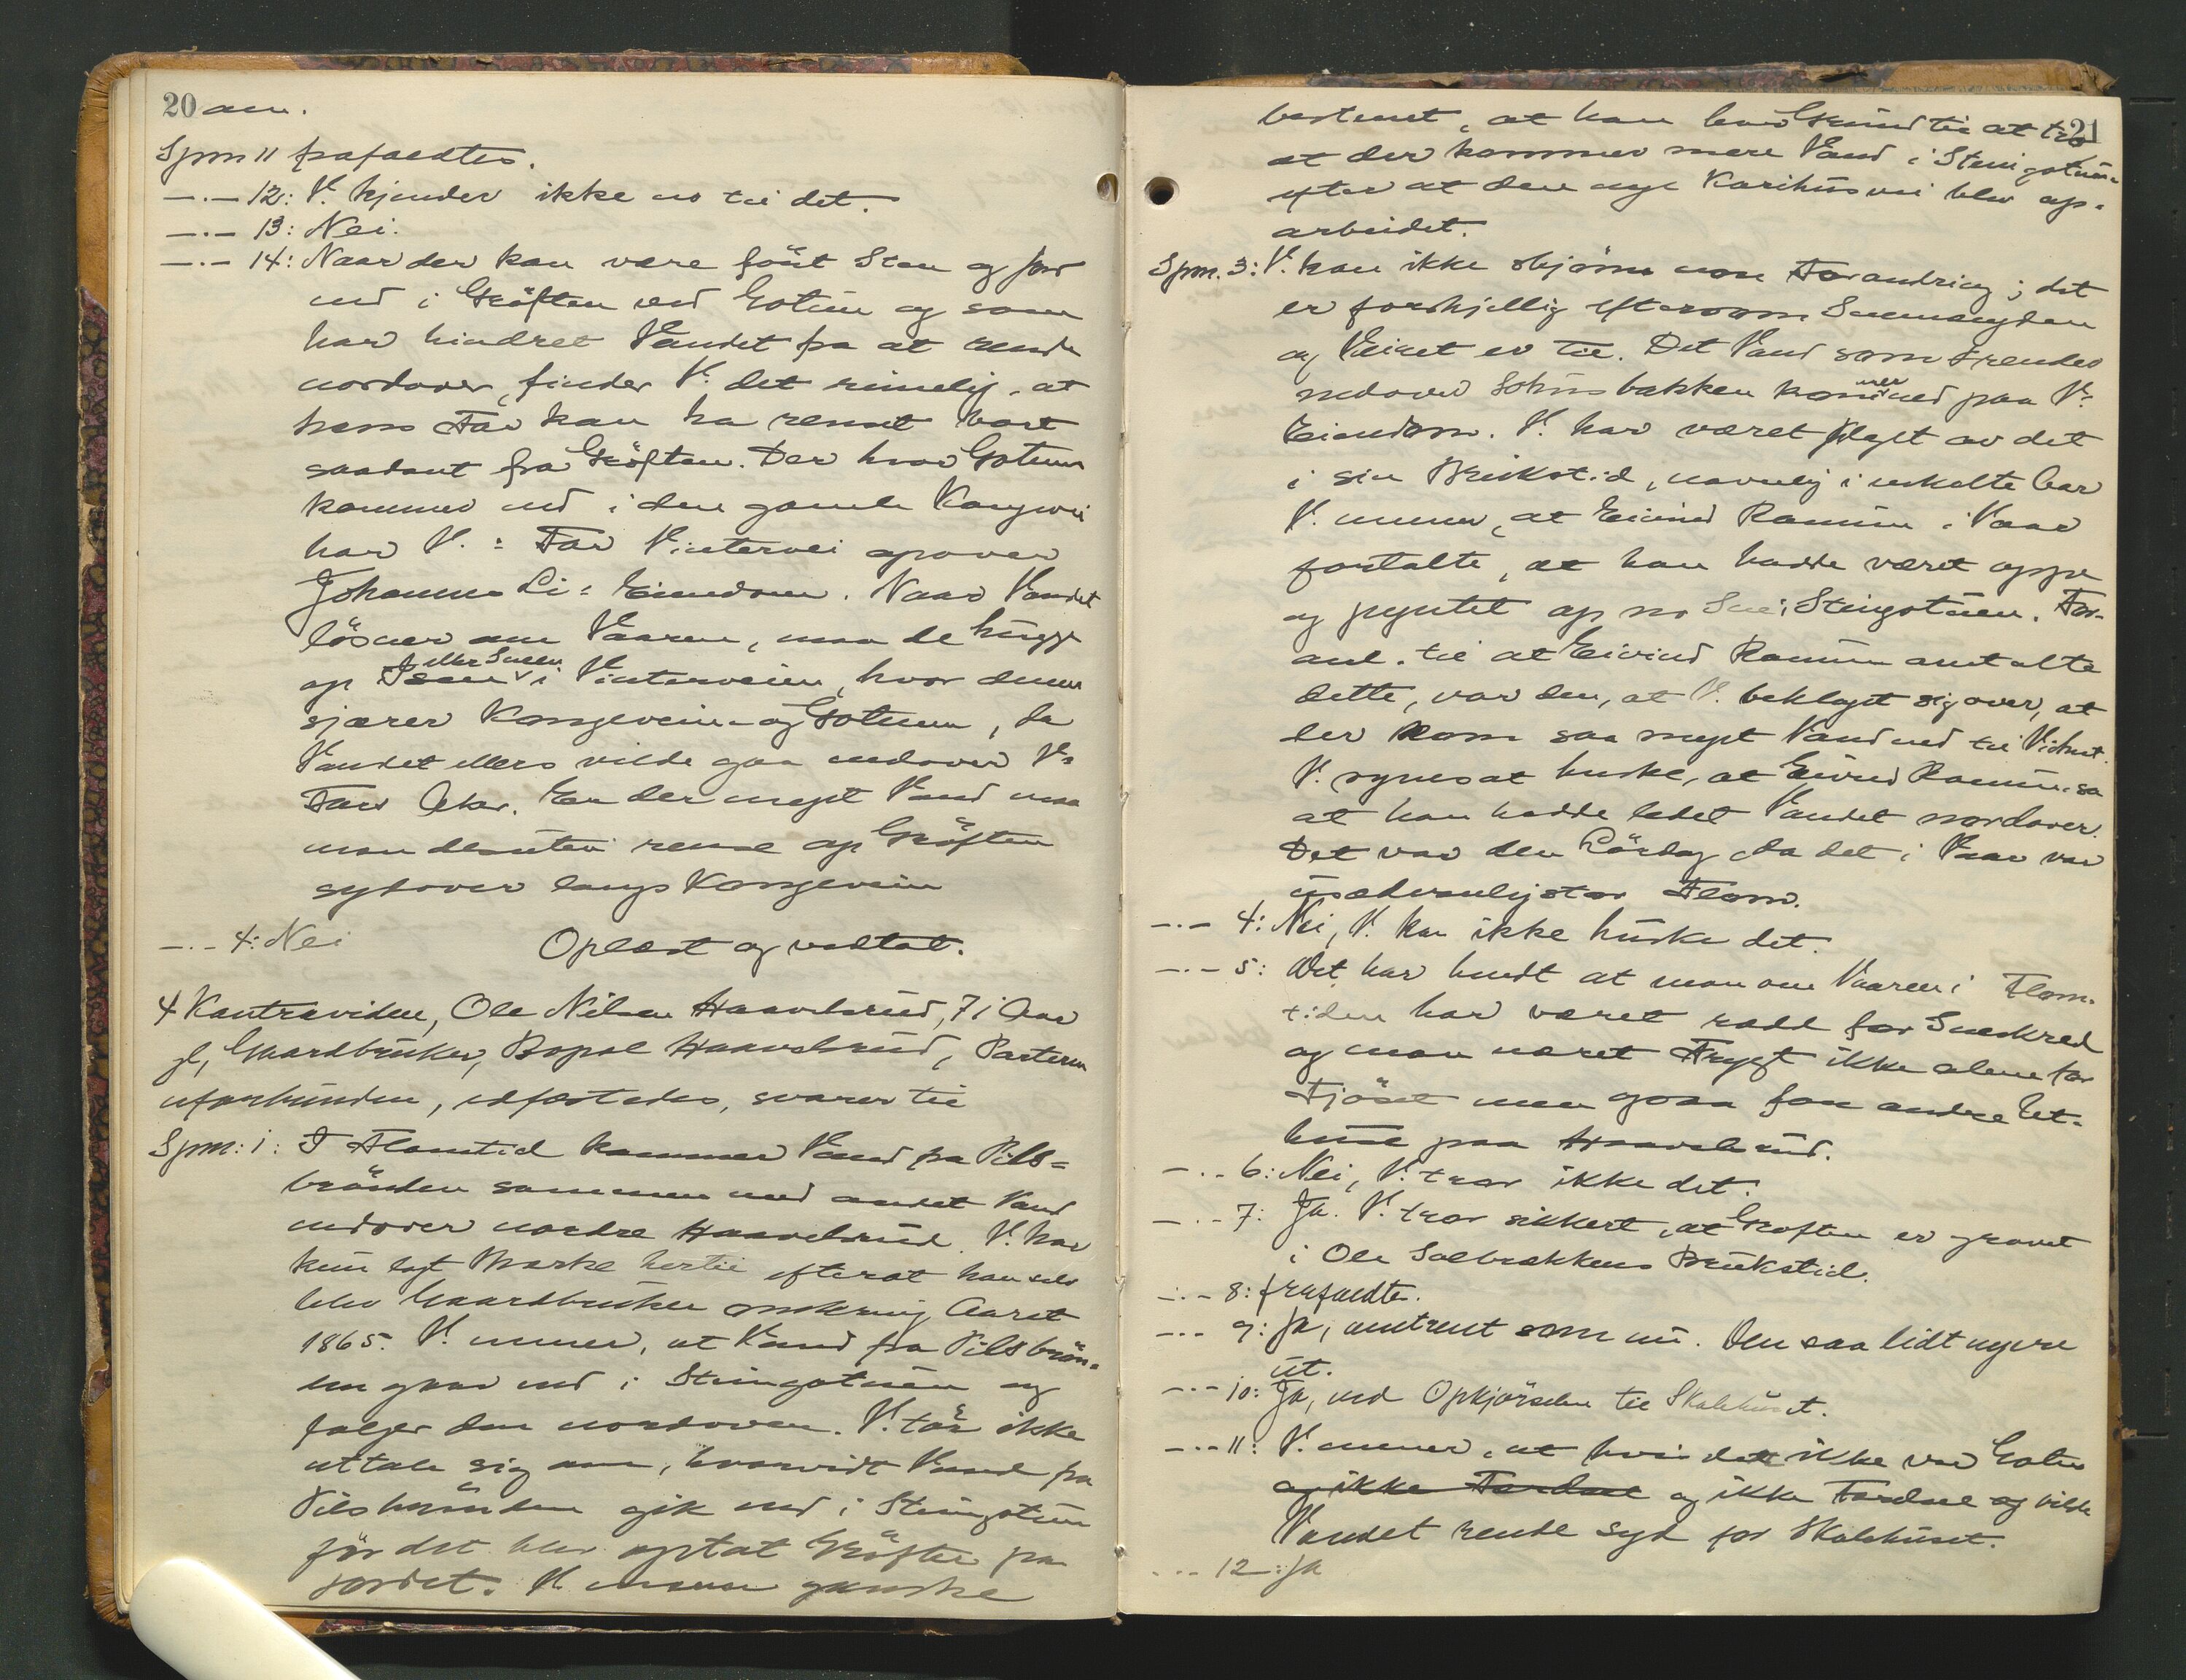 20 om.
Spm 11 frafaldtes.
—.— 12: V. kjender ikke no til det.
—.— 13: Nei.
—.— 14: Naar der kan være föist Sten og Jord
ned i Gröften ved Gotuen og som
har hindret Vandet fra at rende
nordover, finder V. det rimelig, at
hans Far kan ha renset bort
saadant fra Gröften. Der hvor Gotuen
kommer ned i den gamle Kongevei
har V.s Far Vintervei opover
Johannes Li's Eiendom. Naar Vandet
lösner om Vaaren, maa de hugge
op Isen eller Sneen i Vinterveien, hvor denne
sjærer Kongeveien og Gotuen, da
Vandet ellers vilde gaa nedover V's
Fars Aker. Er der meget Vand maa
man desuten rense op Gröften
sydover langs Kongeveien
—.— 4: Nei Oplæst og vedtat.
4 Kontravidne, Ole Nilsen Haavelsrud, 71 Aar
gl, Gaardbruker, Bopæl Haavelsrud, Parterne
uforbunden, edfæstedes, svarer til
Spm: 1: I Flomtid kommer Vand fra Pils-
brönden sammen med andet Vand
nedover nordre Haavelsrud. V. har
kun lagt Mærke hertil efterat han selv
blev Gaardbruker omkring Aaret
1865. V. mener, at Vand fra Pilsbrön-
den gaar ned i Steingotuen og
følger den nordover. V. tör ikke
uttale sig om, hvorvidt Vand fra
Pilsbrönden gik ned i Steingotuen
för det blev optat Gröfter paa
Jordet. V. mener ganske
21
bestemt, at han har Grund til at tro
at der kommer mere Vand i Steingotuen
efter at den nye Karihusvei blev op-
arbeidet.
Spm. 3: V. kan ikke skjönne noen Forandring; det
er forskjellig eftersom Snemengden
og Veiret er til. Det Vand som render
nedover bakken kommer ned paa V's
Eiendom. V. har været plaget av det
i sin Brukstid, navnlig i enkelte Aar
V. mener, at Eivind Ramun i Vaar
fortalte, at han hadde været oppe
og pyntet op no Sne i Steingotuen. For-
anl. til at Eivind Ramun omtalte
dette, var den, at V. beklaget sig over, at
der kom saa meget Vand ned til Vidnet.
V. synes at huske, at Eivind Ramun sa
at han hadde ledet Vandet nordover.
Det var den Lördag da det i Vaar var
usædvanlig stor Flom.
—.— 4: Nei, V. kan ikke huske det.
—.— 5: Det har hendt at man om Vaaren i Flom-
tiden har været rædd for Sneskred
og man næret Frygt ikke alene for
Fjöset men ogsaa for andre Ut-
huse paa Haavelsrud.
—.— 6: Nei, V. tror ikke det.
—.— 7: Ja. V. tror sikkert, at Grøften er gravet
i Ole Solbrækkens Brukstid.
—.— 8: frafaldtes.
—.— 9: Ja, omtrent som nu. Den saa lidt nyere
ut.
—.— 10: Ja, ved Opkjörselen til Skolehuset.
—.— 11: V. mener, at hvis det ikke var Gotu
og ikke Fardæl og ikke Fardæl og vilde
Vandet rende syd for Skolehuset.
—.— 12: Ja